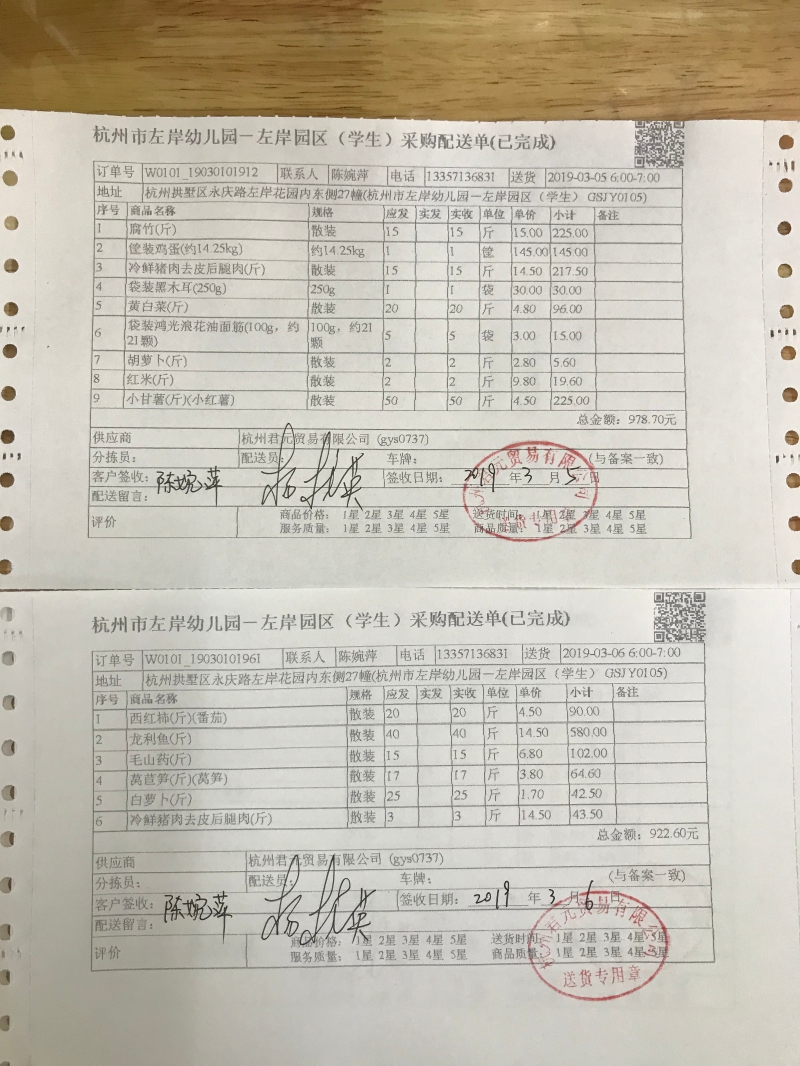 杭州市左岸幼儿园－左岸园区（学生）采购配送单(已完成)
订单号 W0101_19030101912 联系人 陈婉萍 电话 13357136831 送货 2019-03-05 6:00-7:00
地址 杭州拱墅区永庆路左岸花园内东侧27幢(杭州市左岸幼儿园－左岸园区（学生） GSJY0105)
序号 商品名称 规格 应发 实发 实收 单位 单价 小计 备注
1 腐竹(斤) 散装 15 15 斤 15.00 225.00
2 筐装鸡蛋(约14.25kg) 约14.25kg 1 1 筐 145.00 145.00
3 冷鲜猪肉去皮后腿肉(斤) 散装 15 15 斤 14.50 217.50
4 袋装黑木耳(250g) 250g 1 1 袋 30.00 30.00
5 黄白菜(斤) 散装 20 20 斤 4.80 96.00
6 袋装鸿光浪花油面筋(100g，约21颗) 100g，约21颗 5 5 袋 3.00 15.00
7 胡萝卜(斤) 散装 2 2 斤 2.80 5.60
8 红米(斤) 散装 2 2 斤 9.80 19.60
9 小甘薯(斤)(小红薯) 散装 50 50 斤 4.50 225.00
总金额：978.70元
供应商 杭州君元贸易有限公司 (gys0737)
分拣员： 配送员： 车牌： (与备案一致)
客户签收：陈婉萍 签收日期： 2019 年 3 月 5 日
配送留言：
评价 商品价格： 1星 2星 3星 4星 5星 送货时间： 1星 2星 3星 4星 5星
服务质量： 1星 2星 3星 4星 5星 商品质量： 1星 2星 3星 4星 5星
杭州市左岸幼儿园－左岸园区（学生）采购配送单(已完成)
订单号 W0101_19030101961 联系人 陈婉萍 电话 13357136831 送货 2019-03-06 6:00-7:00
地址 杭州拱墅区永庆路左岸花园内东侧27幢(杭州市左岸幼儿园－左岸园区（学生） GSJY0105)
序号 商品名称 规格 应发 实发 实收 单位 单价 小计 备注
1 西红柿(斤)(番茄) 散装 20 20 斤 4.50 90.00
2 龙利鱼(斤) 散装 40 40 斤 14.50 580.00
3 毛山药(斤) 散装 15 15 斤 6.80 102.00
4 莴苣笋(斤)(莴笋) 散装 17 17 斤 3.80 64.60
5 白萝卜(斤) 散装 25 25 斤 1.70 42.50
6 冷鲜猪肉去皮后腿肉(斤) 散装 3 3 斤 14.50 43.50
总金额：922.60元
供应商 杭州君元贸易有限公司 (gys0737)
分拣员： 配送员： 车牌： (与备案一致)
客户签收：陈婉萍 签收日期： 2019 年 3 月 6 日
配送留言：
评价 商品价格： 1星 2星 3星 4星 5星 送货时间： 1星 2星 3星 4星 5星
服务质量： 1星 2星 3星 4星 5星 商品质量： 1星 2星 3星 4星 5星
杭州君元贸易有限公司
送货专用章